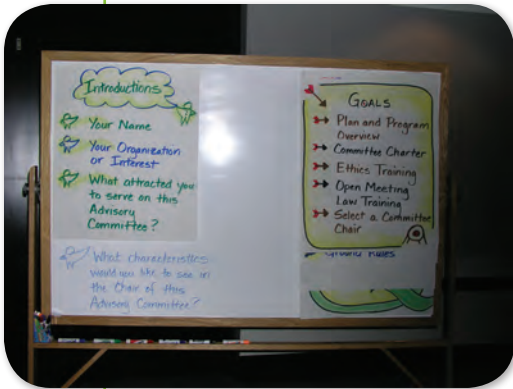 Introductions
Your Name
Your Organization
or Interest
What attracted you
to serve on this
Advisory
Committee?
What characteristics
would you like to see in
the Chair of this
Advisory Committee?
GOALS
Plan and Program
Overview
Committee Charter
Ethics Training
Open Meeting
Law Training
Select a Committee
Chair
Ground Rules